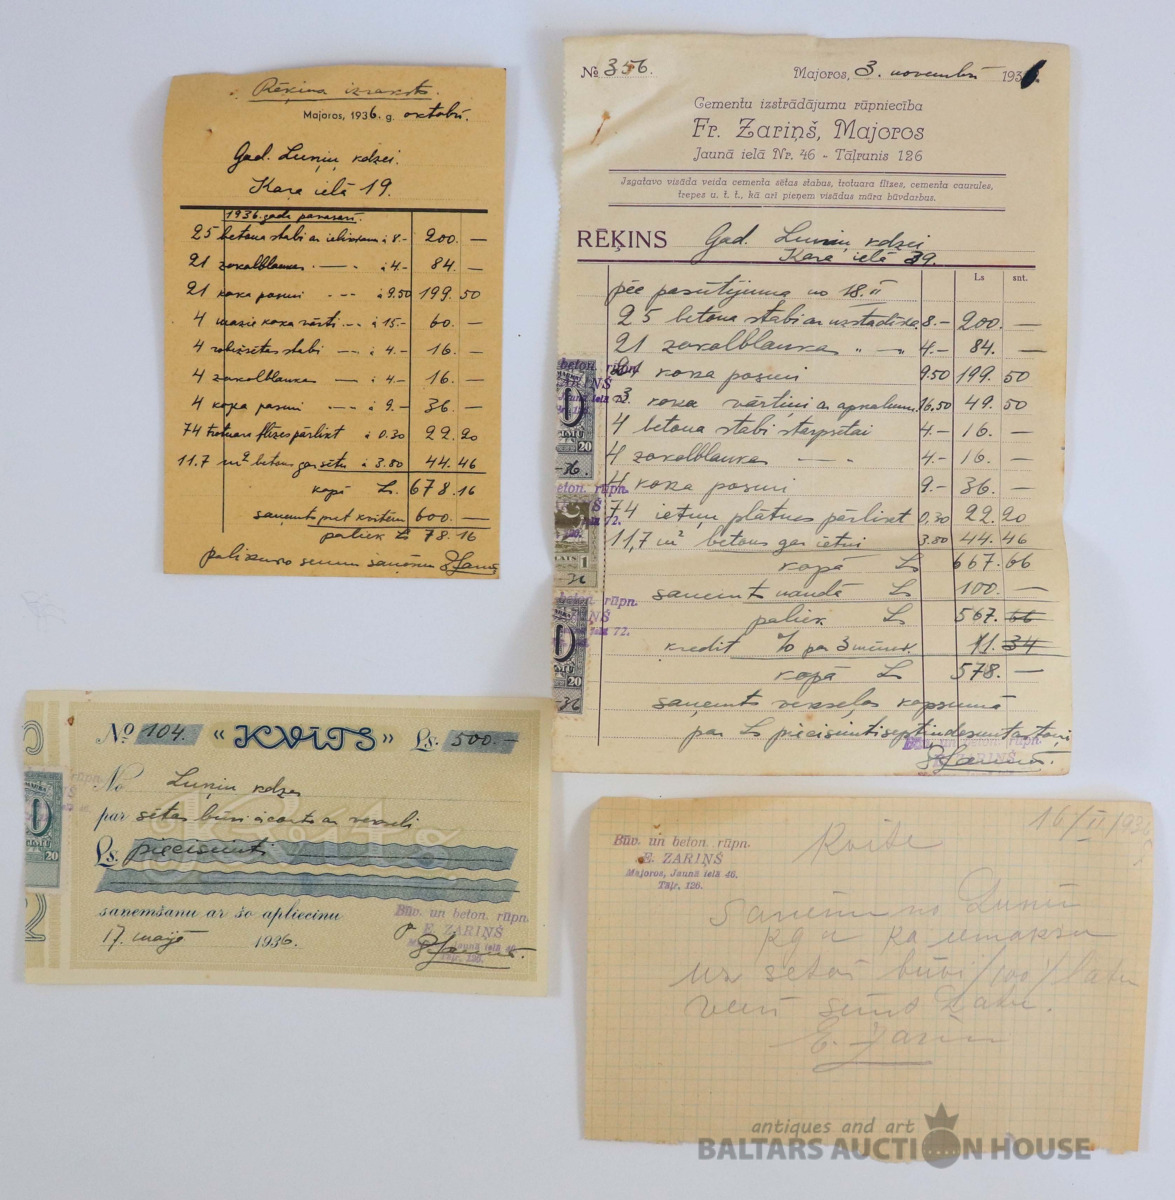 Rēķina izraksts.
Majoros, 1936. g. oktobrī.
God. Luniņ kdzei.
Kara ielā 19.
1936. gada pavasarī.
25 betona stabi ar ielikšanu à 8.- 200. —
21 zokolblankas — à 4.- 84. —
21 koka posmi — à 9.50 199.50
4 mazie koka vārti — à 15.- 60. —
4 robežsētas stabi — à 4.- 16. —
4 zokolblankas — à 4.- 16. —
4 koka posmi — à 9.- 36. —
74 trotuara flīzes pārlikt à 0.30 22.20
11.7 m² betons gar sētu à 3.80 44.46
kopā Ls 678.16
saņemts pret kvitēm 600. —
paliek Ls 78.16
palikušo sumu saņēmu
№ 356.
Majoros, 3. novembrī 1936.
Cementu izstrādājumu rūpniecība
Fr. Zariņš, Majoros
Jaunā ielā Nr. 46 - Tālrunis 126
Izgatavo visāda veida cementa sētas stabus, trotuara flīzes, cementa caurules,
trepes u. t. t., kā arī pieņem visādus mūra būvdarbus.
RĒĶINS God. Luniņ kdzei
Kara ielā 39.
Ls snt.
pēc pasūtījuma no 18.II
25 betona stabi ar uzstādīš. 8.- 200. —
21 zokolblankas " — " 4.- 84. —
21 koka posmi 9.50 199.50
3 koka vārtiņi ar apkalumu 16,50 49.50
4 betona stabi starpsētai 4.- 16. —
4 zokolblankas — " 4.- 16. —
4 koka posmi 9.- 36. —
74 ietvju plātnes pārlikt 0,30 22.20
11,7 m² betons gar ietvi 3.80 44.46
kopā Ls 667.66
saņemts naudā Ls 100. —
paliek Ls 567.66
kredit % par 3 mēneš. 11.34
kopā Ls 578. —
saņemts vekseļos kopsummā
par Ls piecisimti septiņdesmitastoņi
beton. rūpn.
20
-36.
LATS 1
72.
№ 104. "KVĪTS" Ls. 500.-
No Luniņ kdzes
par sētas būvi àconto ar vekseli
Ls. piecisimti
saņemšanu ar šo apliecinu
17. maijā 1936.
Būv. un beton. rūpn.
E. ZARIŅŠ
Majoros, Jaunā ielā 46.
Tāļr. 126.
16/II/1936
Būv. un beton. rūpn.
E. ZARIŅŠ
Majoros, Jaunā ielā 46.
Tāļr. 126.
Kvite
Saņēmu no Luniņ
kgu kā iemaksu
uz sētas būvi /100/ latu
viens simts Latu.
E. Zariņ
antiques and art
BALTARS AUCTION HOUSE